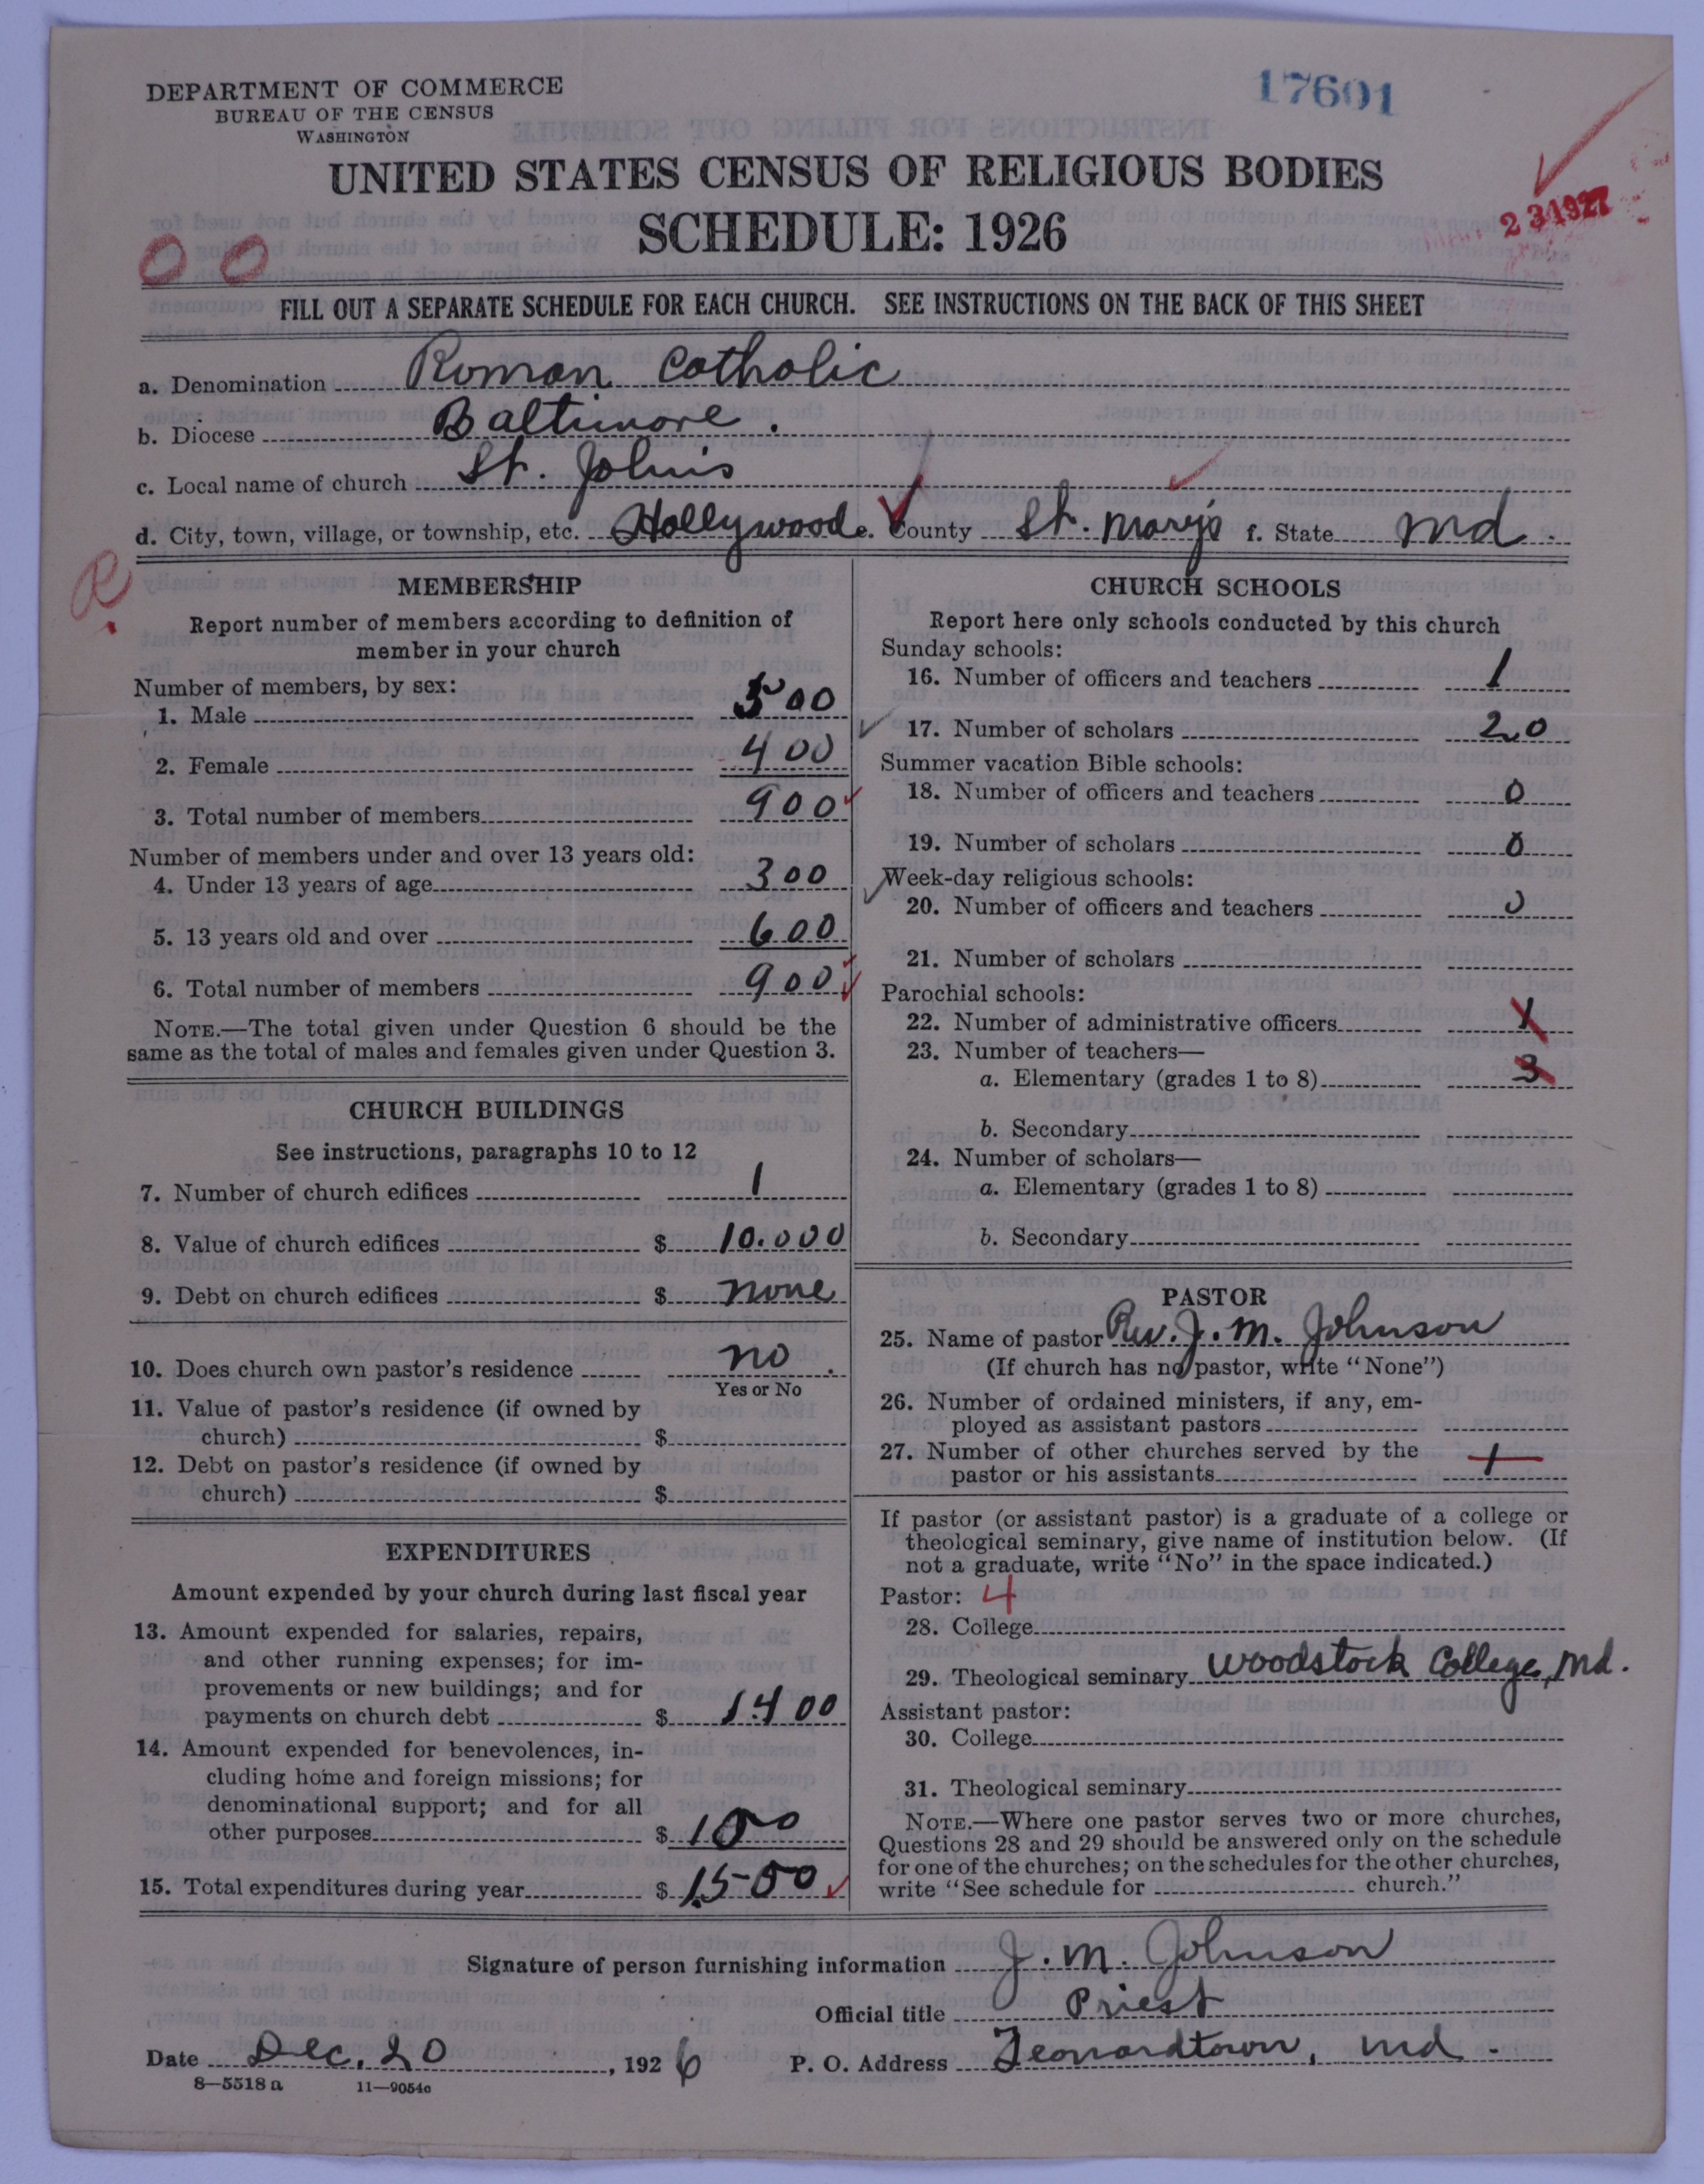 DEPARTMENT OF COMMERCE
BUREAU OF THE CENSUS
WASHINGTON
17601
UNITED STATES CENSUS OF RELIGIOUS BODIES
SCHEDULE: 1926
2 3 1927
0 0
FILL OUT A SEPARATE SCHEDULE FOR EACH CHURCH. SEE INSTRUCTIONS ON THE BACK OF THIS SHEET
a. Denomination Roman Catholic
b. Diocese Baltimore.
c. Local name of church St. John's
d. City, town, village, or township, etc. Hollywood e. County St. Mary's f. State Md.
R.
MEMBERSHIP
Report number of members according to definition of
member in your church
Number of members, by sex:
1. Male 500
2. Female 400
3. Total number of members 900
Number of members under and over 13 years old:
4. Under 13 years of age 300
5. 13 years old and over 600
6. Total number of members 900
NOTE.—The total given under Question 6 should be the
same as the total of males and females given under Question 3.
CHURCH BUILDINGS
See instructions, paragraphs 10 to 12
7. Number of church edifices 1
8. Value of church edifices $ 10.000
9. Debt on church edifices $ none
10. Does church own pastor's residence no.
Yes or No
11. Value of pastor's residence (if owned by
church) $
12. Debt on pastor's residence (if owned by
church) $
EXPENDITURES
Amount expended by your church during last fiscal year
13. Amount expended for salaries, repairs,
and other running expenses; for im-
provements or new buildings; and for
payments on church debt $ 1400
14. Amount expended for benevolences, in-
cluding home and foreign missions; for
denominational support; and for all
other purposes $ 100
15. Total expenditures during year $ 1500
CHURCH SCHOOLS
Report here only schools conducted by this church
Sunday schools:
16. Number of officers and teachers 1
17. Number of scholars 20
Summer vacation Bible schools:
18. Number of officers and teachers 0
19. Number of scholars 0
Week-day religious schools:
20. Number of officers and teachers 0
21. Number of scholars
Parochial schools:
22. Number of administrative officers 1
23. Number of teachers—
a. Elementary (grades 1 to 8) 3
b. Secondary
24. Number of scholars—
a. Elementary (grades 1 to 8)
b. Secondary
PASTOR
25. Name of pastor Rev. J. M. Johnson
(If church has no pastor, write "None")
26. Number of ordained ministers, if any, em-
ployed as assistant pastors
27. Number of other churches served by the
pastor or his assistants 1
If pastor (or assistant pastor) is a graduate of a college or
theological seminary, give name of institution below. (If
not a graduate, write "No" in the space indicated.)
Pastor: 4
28. College
29. Theological seminary Woodstock College, Md.
Assistant pastor:
30. College
31. Theological seminary
NOTE.—Where one pastor serves two or more churches,
Questions 28 and 29 should be answered only on the schedule
for one of the churches; on the schedules for the other churches,
write "See schedule for church."
Signature of person furnishing information J. M. Johnson
Official title Priest
Date Dec. 20, 1926 P. O. Address Leonardtown, Md.
8—5518 a 11—9054c